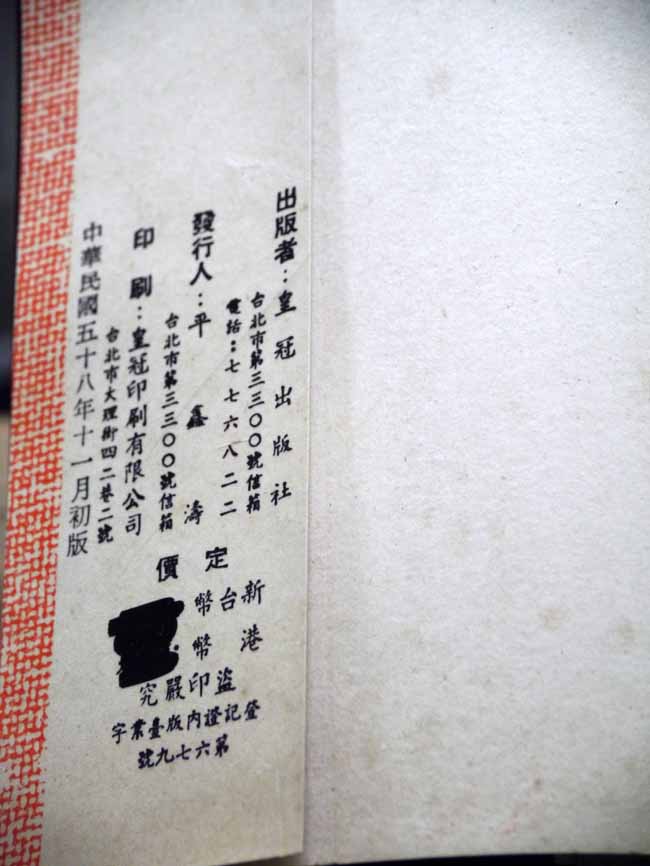 出版者：皇冠出版社
台北市第三三〇〇號信箱
電話：七七六八二二
發行人：平鑫濤
台北市第三三〇〇號信箱
印刷：皇冠印刷有限公司
台北市大理街四二巷二號
中華民國五十八年十一月初版
定價
新台幣
港幣
盜印嚴究
登記證內版臺業字
第六七九號